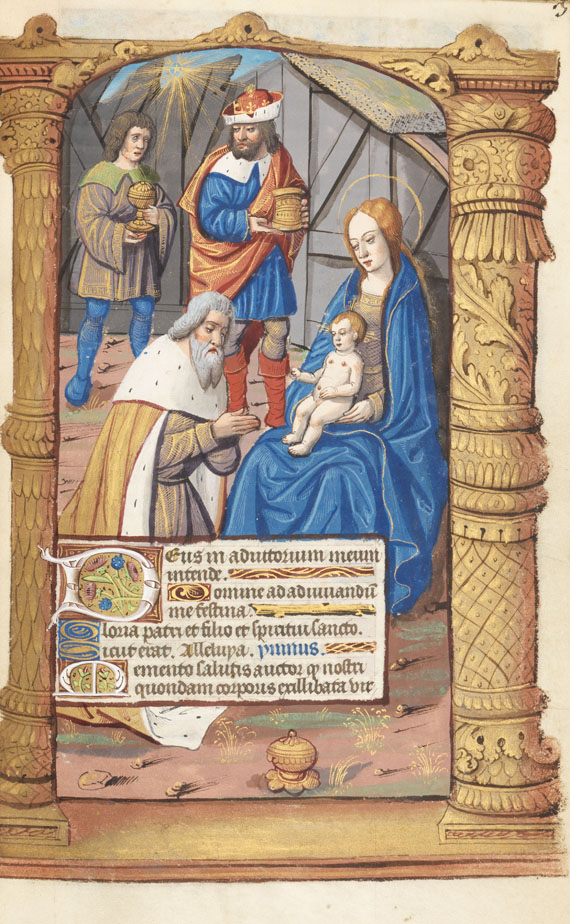 Deus in adiutorium meum
intende.
Domine ad adiuuandū
me festina.
Gloria patri et filio et spiritui sancto.
Sicut erat. Alleluya. ymnus.
Memento salutis auctor q nostri
quondam corporis exillibata vir